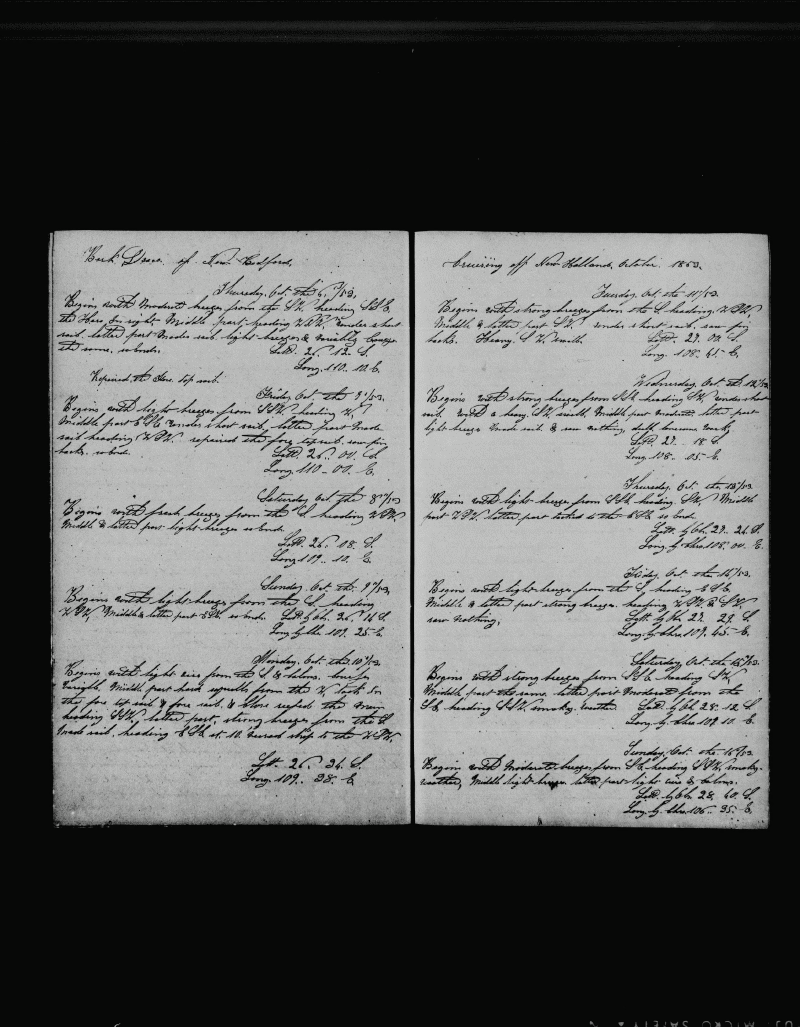 Bark Dove. of New Bedford,
Thursday. Oct. the 6, /53,
Begins with Moderate breezes from the SW. heading SSE,
the Hero In sight, Middle part heading WNW. under short
sail. latter part Made sail. light breezes & variable
the same. so ends.
Latt. 26. 12. S.
Long. 110. 10 E.
Repaired the fore top sail.
Friday Oct. the 7/53,
Begins with light breezes from SSW, heading W,
Middle part ESE under short sail, latter part Made
sail heading WNW. repaired the fore topsail. saw fin
backs. so ends.
Latt. 26. 00. S.
Long. 110 - 00. E.
Saturday Oct the 8/53
Begins with fresh breezes from the S. heading WNW.
Middle & latter part light breezes so ends.
Latt. 26. 08. S.
Long 109. 10. E.
Sunday Oct the. 9/53,
Begins with light breezes from the S. heading
Middle & latter part ESE. so ends.
Latt. by Ob. 26. 16 S.
Long by Chr. 109. 25 E.
Monday. Oct. the 10/53.
Begins with light airs from the S. & calms.
Middle part hard squalls from the W. took In
the fore top sail & fore sail. & close reefed the Main
heading SSW, latter part. strong breezes from the S.
Made sail, heading ESE at 10. weared ship to the WSW.
Latt. 26 34. S.
Long. 109. 38. E
Cruising off New Holland, October 1853.
Tuesday Oct. the 11/53.
Begins with strong breezes from the S. heading. WSW,
Middle & latter part SW. under short sail. saw fin
backs. Heavy. SW swell.
Latt. 27. 00. S.
Long. 108. 45. E,
Wednesday, Oct the 12/53
Begins with strong breezes from SSE heading SW under short
sail. with a heavy. SW swell, Middle part moderate, latter part
light breeze Made sail & saw nothing,
Latt. 27. 18. S.
Long 108 - 05 - E.
Thursday. Oct the 13/53
Begins with light breezes from SSE heading. SW. Middle
part WSW, latter part tacked to the ESE so ends
Latt. by Ob. 27. 26. S.
Long. by Chr. 108. 00. E.
Friday Oct the 14/53.
Begins with light breezes from the S. heading ESE,
Middle & latter part strong breezes. heading WSW & SW.
saw nothing,
Latt. by Ob 27. 29. S.
Long by Chr. 109. 45 - E.
Saturday Oct the 15/53.
Begins with strong breezes from SSE heading SW.
Middle part the same. latter part Moderate from the
SE, heading SSW. smoky. weather
Latt by Ob 28. 12 S.
Long. by Chr 109. 10. E.
Sunday, Oct. the 16/53
Begins with Moderate breezes from SE heading SSW, smoky.
weather, Middle light breezes latter part light airs & calms.
Latt. by Ob. 28. 40. S.
Long. by Chr. 106 - 35 - E.